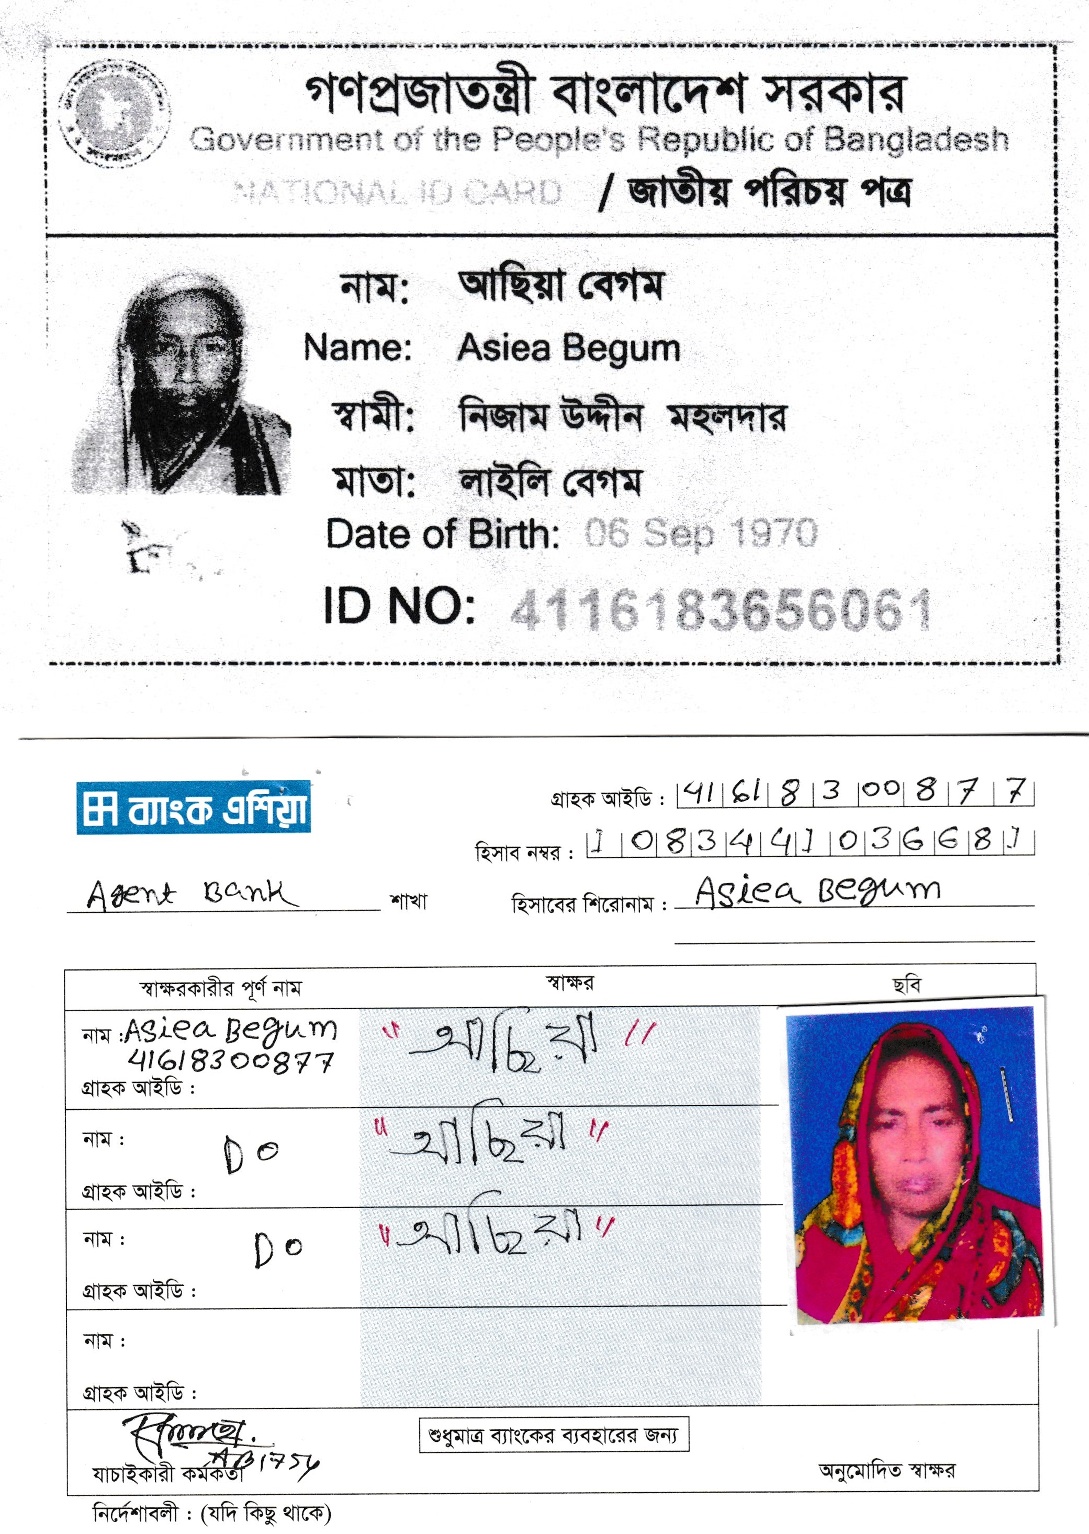 গণপ্রজাতন্ত্রী বাংলাদেশ সরকার
Government of the People's Republic of Bangladesh
NATIONAL ID CARD / জাতীয় পরিচয় পত্র
নাম: আছিয়া বেগম
Name: Asiea Begum
স্বামী: নিজাম উদ্দীন মহলদার
মাতা: লাইলি বেগম
Date of Birth: 06 Sep 1970
ID NO: 4116183656061
ব্যাংক এশিয়া
গ্রাহক আইডি : 41618300877
হিসাব নম্বর : 1083441036681
Agent Bank শাখা
হিসাবের শিরোনাম : Asiea Begum
স্বাক্ষরকারীর পূর্ণ নাম স্বাক্ষর ছবি
নাম : Asiea Begum "আছিয়া"
41618300877
গ্রাহক আইডি :
নাম : DO "আছিয়া"
গ্রাহক আইডি :
নাম : DO "আছিয়া"
গ্রাহক আইডি :
নাম :
গ্রাহক আইডি :
শুধুমাত্র ব্যাংকের ব্যবহারের জন্য
AB1754
যাচাইকারী কর্মকর্তা অনুমোদিত স্বাক্ষর
নির্দেশাবলী : (যদি কিছু থাকে)